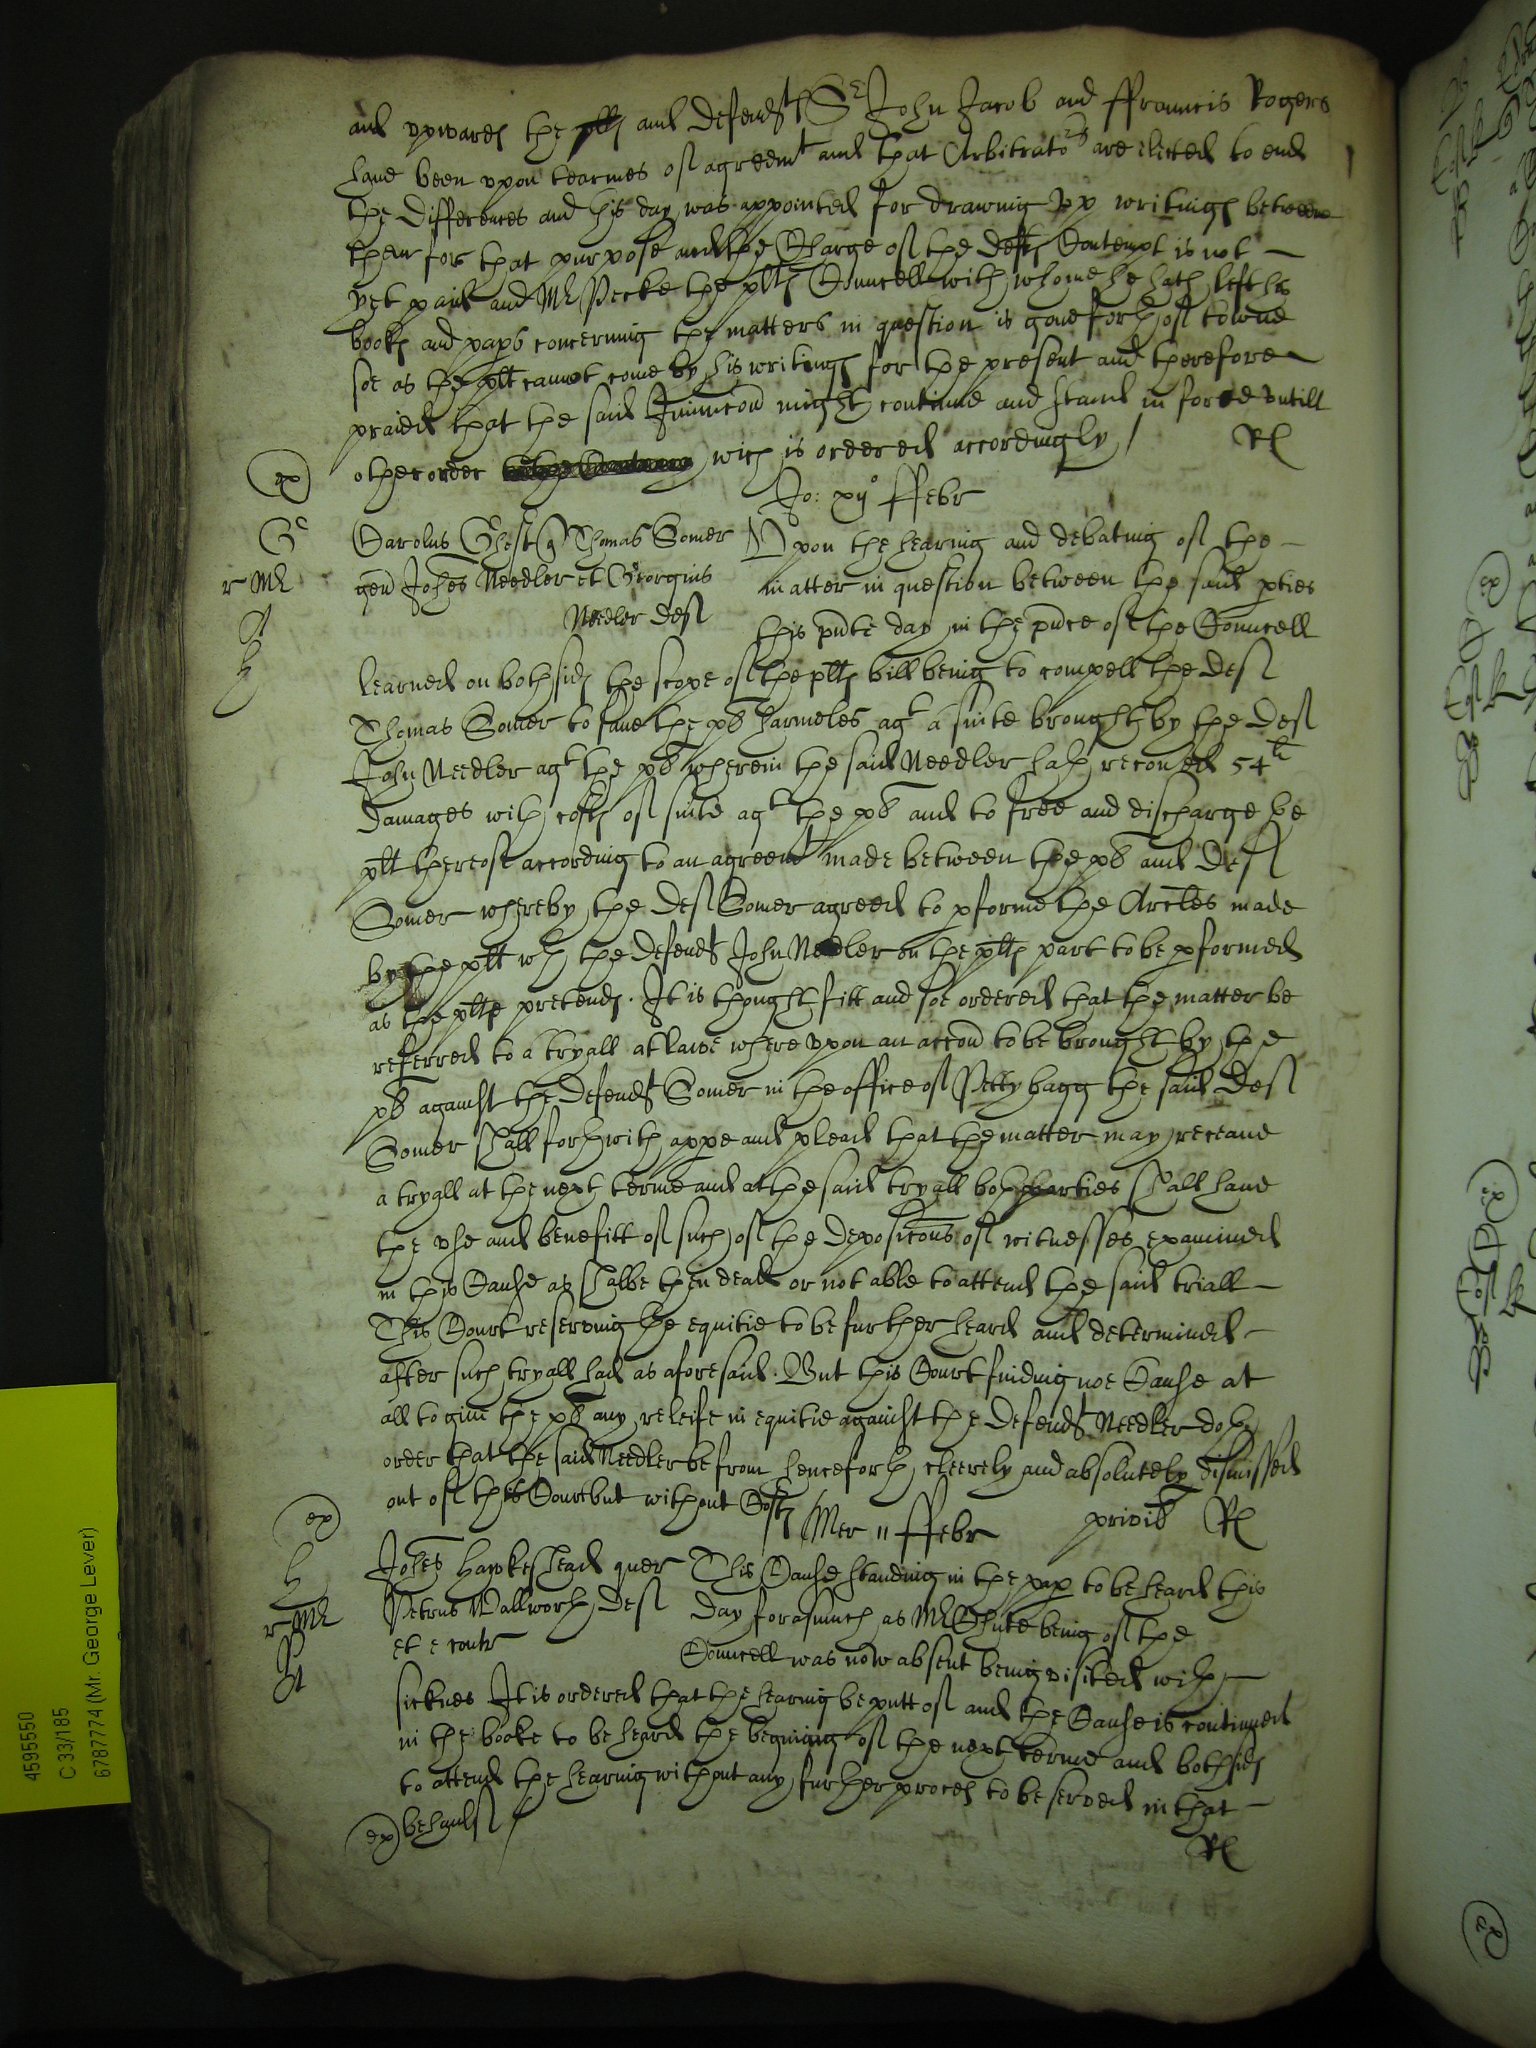 and vpwards the pltf and defendts Sr John Jacob and ffrauncis Rogers
haue been vpon tearmes of agreemt and that Arbitrators are elected to end
the differences and this day was appointed for drawing vp writings betweene
them for that purpose and the Charge of the defts Contempt is not
yet paid and Mr Pecke the plts Councell with whome he hath left his
books and paps concerning the matters in question is gone forth of towne
soe as the plt cannot come by his writings for the present and therefore
praied that the said Iniunccon might continue and stand in force vntill
other order wch is ordered accordingly / Rl
ex
Jo: xijo ffebr
Ge
r Ml
A
h
Carolus Ghest q Thomas Somer
gen Johes Needler et Georgius
Needler def
Vpon the hearing and debating of the
matter in question between the said pties
this pnte day in the pnce of the Councell
learned on both sids the scope of the plts bill being to compell the def
Thomas Somer to saue the pl harmeles agt a suite brought by the def
John Needler agt the pl wherein the said Needler hath recoued 54li
damages with costs of suite agt the pl and to free and discharge the
plt thereof according to an agreemt made between the pl and def
Somer whereby the def Somer agreed to pforme the Arcles made
by the plt wth the defendt John Needler on the plts part to be pformed
as the plte pretends. It is thought fitt and soe ordered that the matter be
referred to a tryall at lawe where vpon an accon to be brought by the
pl against the defendt Somer in the office of Petty bagg the said def
Somer shall forthwith appe and plead that the matter may receaue
a tryall at the next terme and at the said tryall both parties shall haue
the vse and benefitt of such of the deposicons of witnesses examined
in this Cause as shalbe then dead or not able to attend the said triall
This Court reserving the equitie to be further heard and determined
after such tryall had as aforesaid. But this Court finding noe Cause at
all to giue the pl any releife in equitie against the defendt Needler doth
order that the said Needler be from henceforth cleerely and absolutely dismissed
out of this Court but without Costs
privis Rl
Mer 11 ffebr
ex
h
r Ml
Johes Hawkeshead quer
Petrus Wallworth def
et e contr
This Cause standing in the pap to be heard this
day forasmuch as Mr Chute being of the
Councell was now absent being visited with
sicknes It is ordered that the hearing be putt of and the Cause is continued
in the booke to be heard the begining of the next terme and both sids
to attend the hearing without any further proces to be served in that
ex behaulf /
Rl
4595550
C 33/185
6787774 (Mr. George Lever)